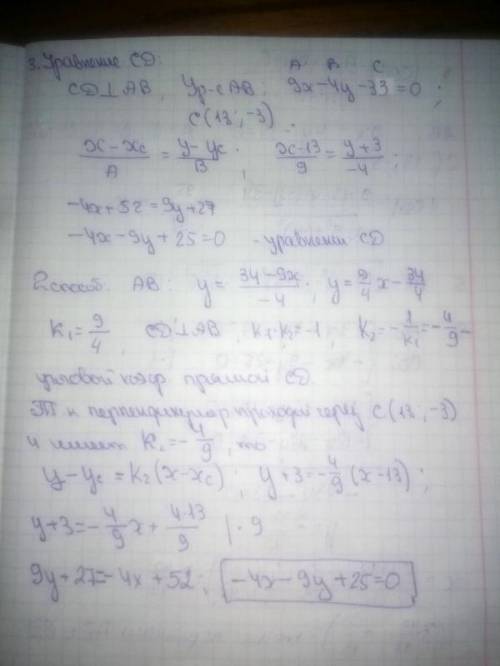 3. Уравнение CD:
A B C
CD⊥AB, Ур-е AB: 9x-4y-33=0;
C(13;-3).
(x-xc)/A = (y-yc)/B; (x-13)/9 = (y+3)/-4;
-4x+52=9y+27
-4x-9y+25=0 - уравнение CD
2 способ. AB: y = (34-9x)/-4; y = 9/4 x - 34/4
K₁ = 9/4 CD⊥AB, K₁·K₂=-1, K₂ = -1/K₁ = -4/9 -
угловой коэф. прямой CD.
Т к перпендикуляр проходит через C(13;-3)
и имеет K₂ = -4/9, то
y-yc = K₂(x-xc); y+3 = -4/9 (x-13);
y+3 = -4/9 x + 4·13/9 |·9
9y+27=-4x+52; -4x-9y+25=0